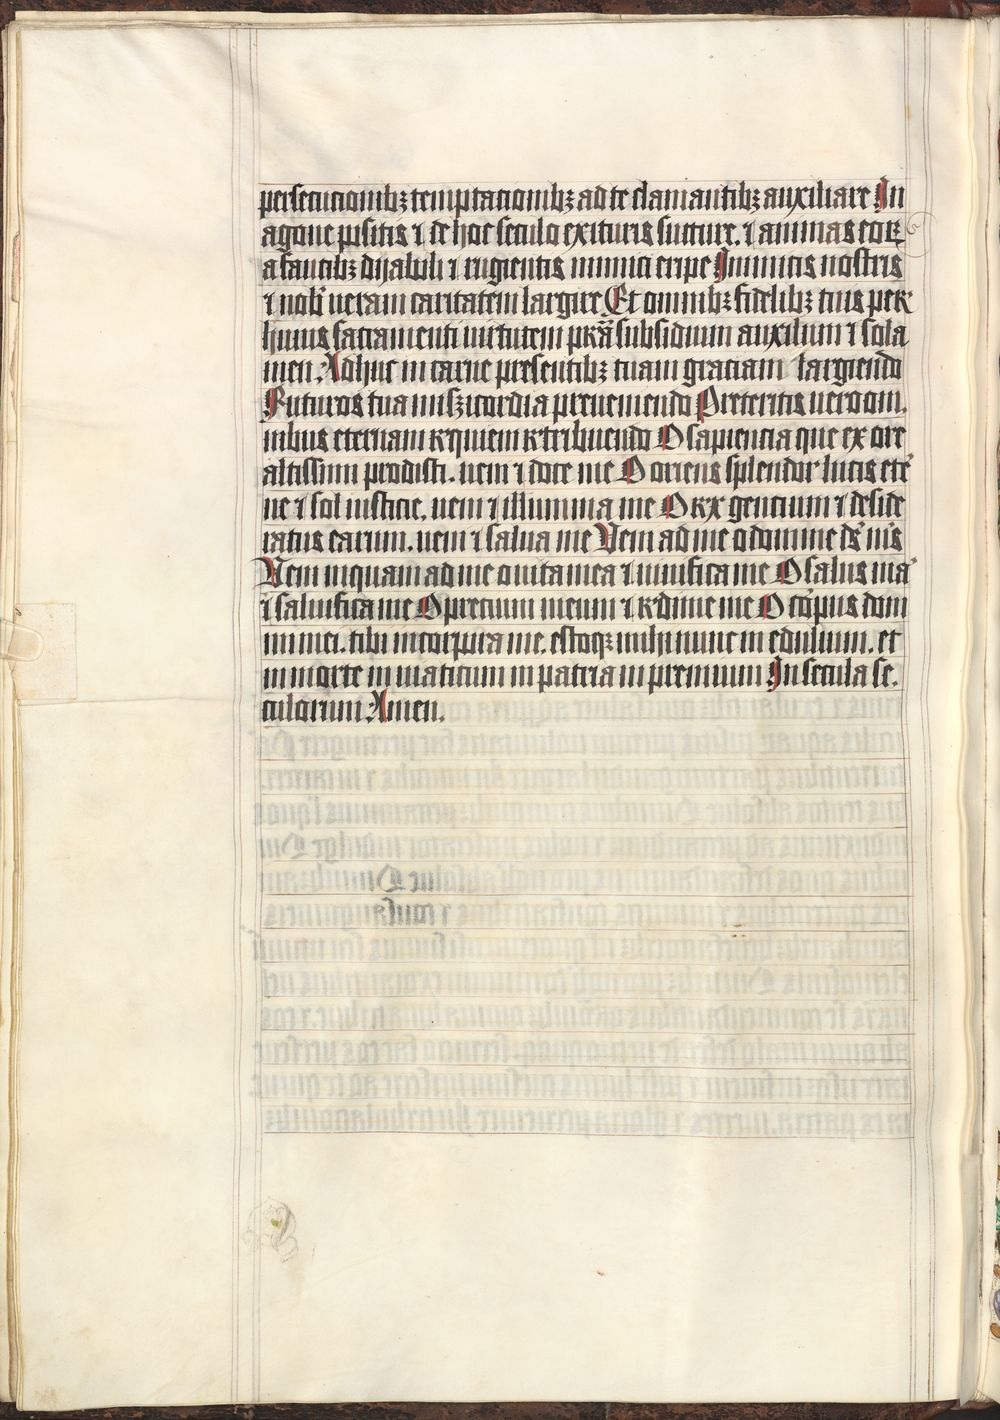 persecucionibꝫ temptacionibꝫ ad te clamantibꝫ auxiliare In
agone positis ⁊ de hoc seculo exituris succurre. ⁊ animas eoꝝ
a faucibꝫ dyaboli ⁊ rugientis inimici eripe Inimicis nostris
⁊ nob̾ ueram caritatem largire Et omnibꝫ fidelibꝫ tuis per
huius sacramenti uirtutem presta subsidium auxilium ⁊ sola
men. Adhuc in carne presentibꝫ tuam graciam largiendo
Futuros tua misꝫicordia preueniendo Preteritis uero om.
nibus eternam requiem retribuendo O sapiencia que ex ore
altissimi prodisti. ueni ⁊ doce me O oriens splendor lucis et̾e
ne ⁊ sol iusticie. ueni ⁊ illumina me O rex gencium ⁊ deside
ratus earum. ueni ⁊ salua me Veni ad me o domine ds̾ m̾s
Veni inquam ad me o uita mea ⁊ uiuifica me O salus m̄a
⁊ saluifica me O precium meum ⁊ redime me O corpus dom
ini mei. tibi incorpora me. estoqꝫ mihi nunc in edulium. et
in morte in uiaticum in patria in premium In secula se.
culorum Amen.